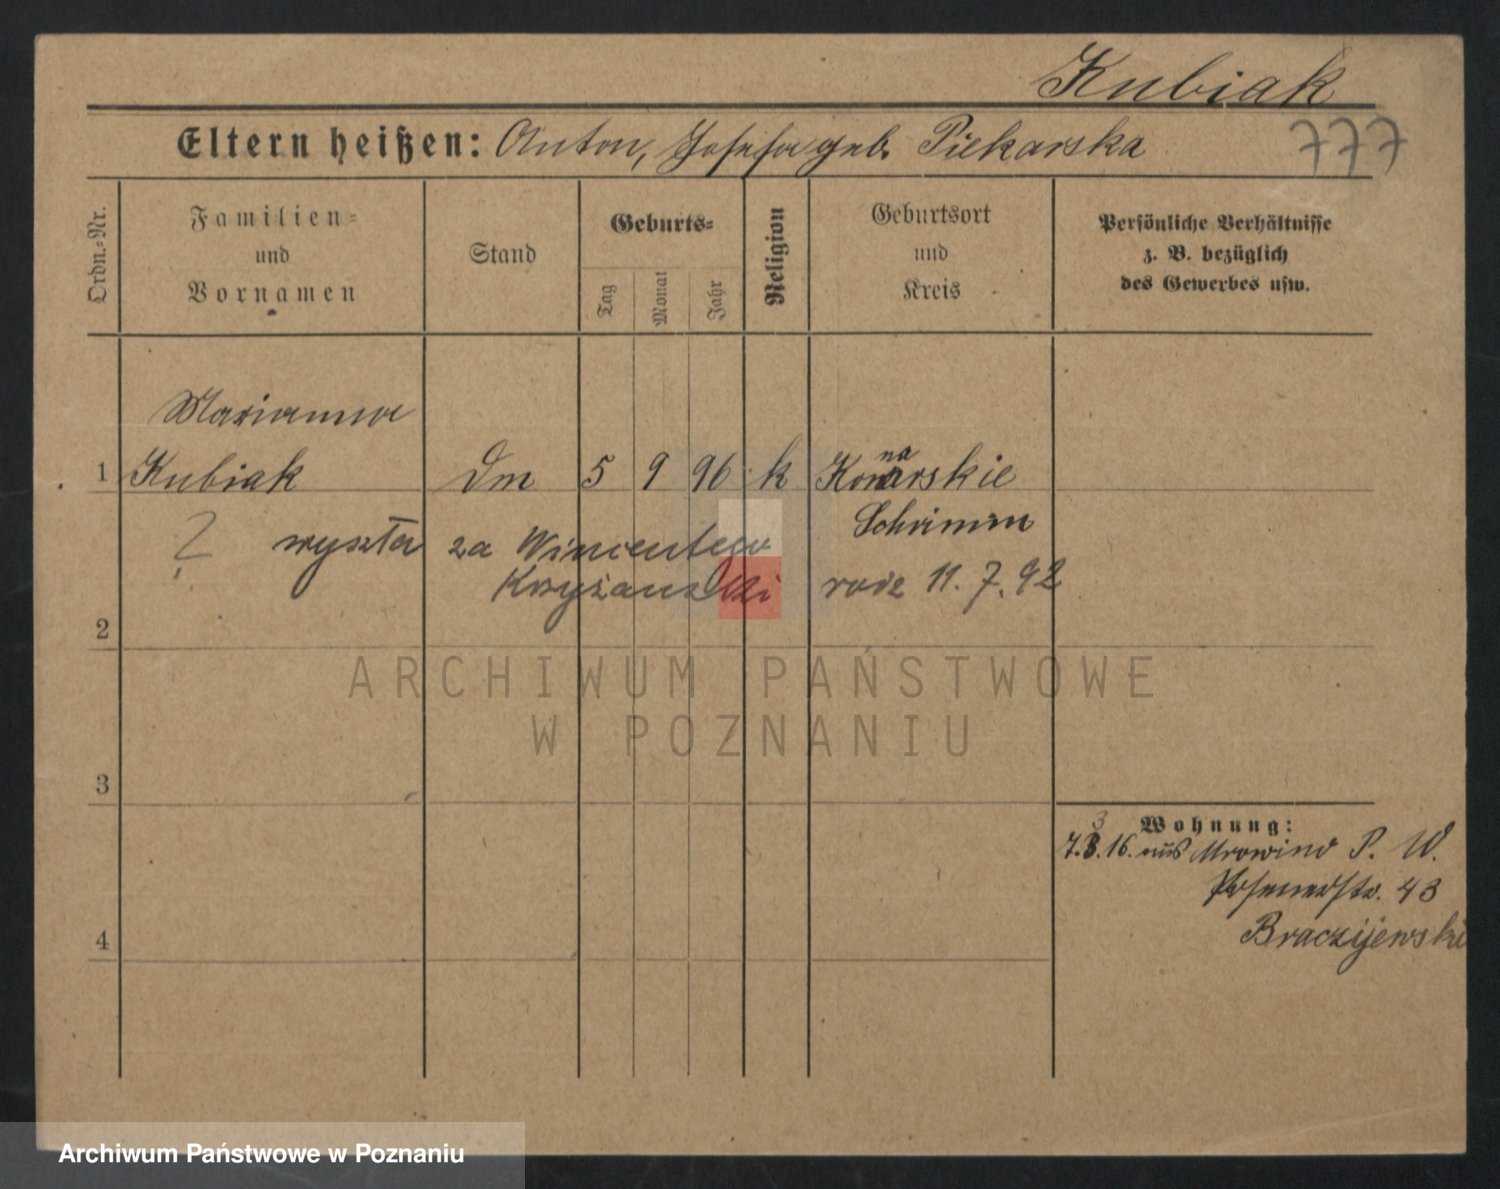 Kubiak
Eltern heißen: Anton, Josefa geb. Piekarska
777
Ordn.=Nr.
Familien=
und
Vornamen
Stand
Geburts=
Tag
Monat
Jahr
Religion
Geburtsort
und
Kreis
Persönliche Verhältnisse
z. B. bezüglich
des Gewerbes usw.
Marianna
1 Kubiak Dm 5 9 96 k Konarskie
na
Schrimm
? wyszła za Wincentego
Krzyżanski rodz 11.7.92
2
3
4
Wohnung:
3
7.3.16. aus Mrowino P. W.
Posenerstr. 43
Braczijewski
ARCHIWUM PAŃSTWOWE
W POZNANIU
Archiwum Państwowe w Poznaniu